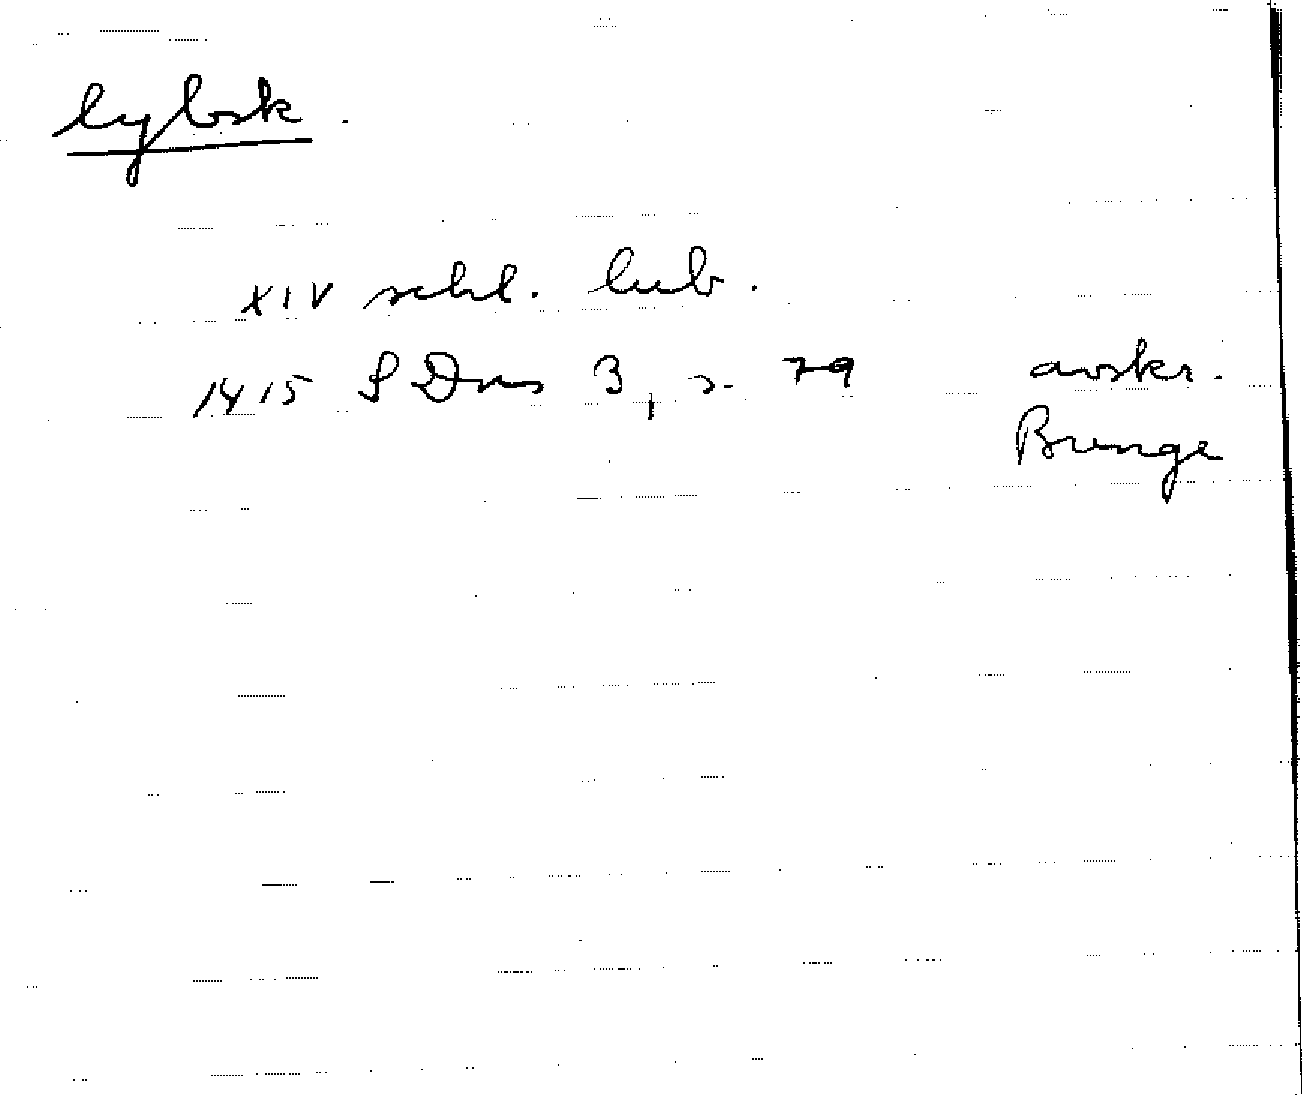 lybsk.
XIV schl. lub.
1415 SDns 3, s. 79 avskr.
Bunge